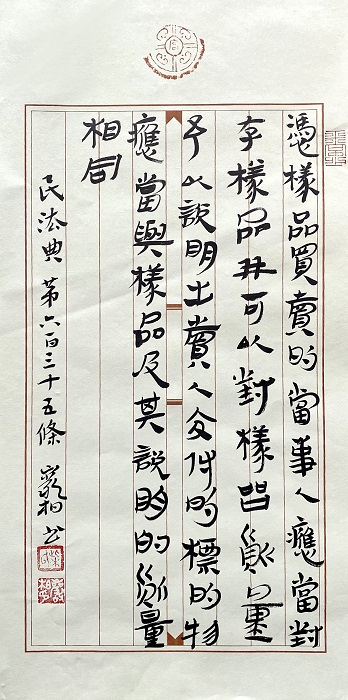 憑樣品買賣的當事人應當對
存樣品并可以對樣品質量
予以說明出賣人交付的標的物
應當與樣品及其說明的質量
相同
民法典第六百三十五條 嚴柏书